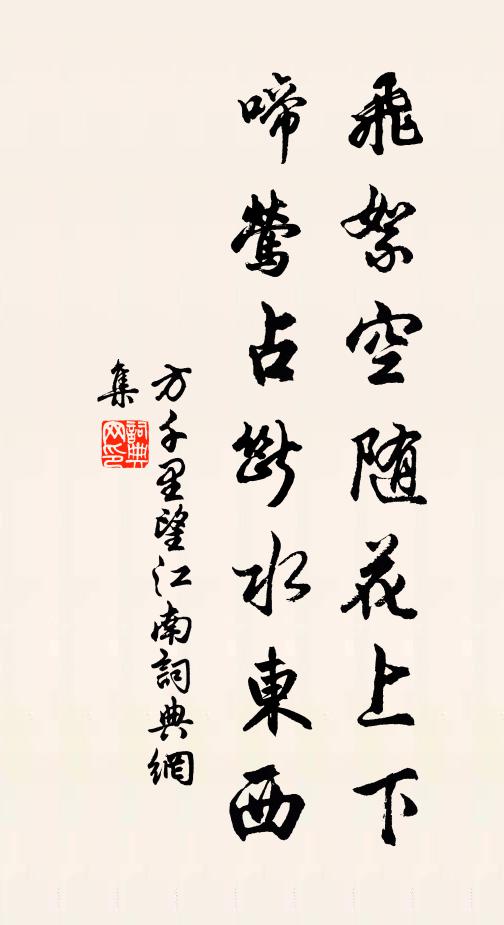 飛絮空随花上下
啼鶯占斷水東西
方千里望江南詞典網
集
詞典
网印